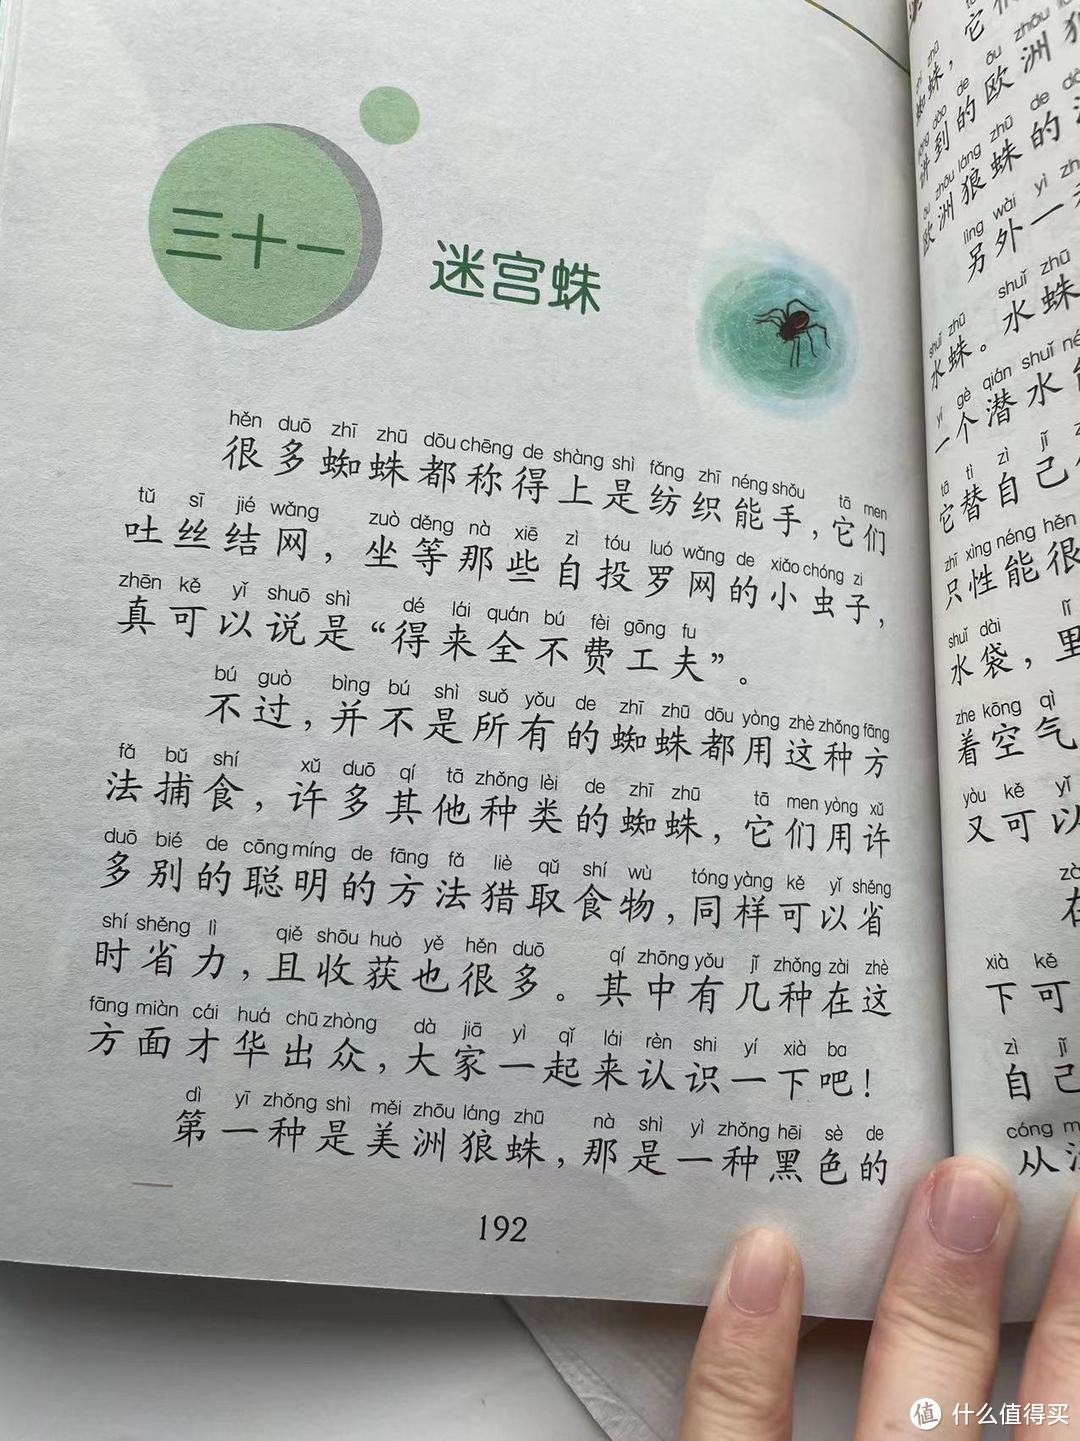 三十一
迷宫蛛
hěn duō zhī zhū dōu chēng de shàng shì fǎng zhī néng shǒu tā men
很多蜘蛛都称得上是纺织能手，它们
tǔ sī jié wǎng zuò děng nà xiē zì tóu luó wǎng de xiǎo chóng zi
吐丝结网，坐等那些自投罗网的小虫子，
zhēn kě yǐ shuō shì dé lái quán bú fèi gōng fu
真可以说是“得来全不费工夫”。
bú guò bìng bú shì suǒ yǒu de zhī zhū dōu yòng zhè zhǒng fāng
不过，并不是所有的蜘蛛都用这种方
fǎ bǔ shí xǔ duō qí tā zhǒng lèi de zhī zhū tā men yòng xǔ
法捕食，许多其他种类的蜘蛛，它们用许
duō bié de cōng míng de fāng fǎ liè qǔ shí wù tóng yàng kě yǐ shěng
多别的聪明的方法猎取食物，同样可以省
shí shěng lì qiě shōu huò yě hěn duō qí zhōng yǒu jǐ zhǒng zài zhè
时省力，且收获也很多。其中有几种在这
fāng miàn cái huá chū zhòng dà jiā yì qǐ lái rèn shi yí xià ba
方面才华出众，大家一起来认识一下吧！
dì yī zhǒng shì měi zhōu láng zhū nà shì yì zhǒng hēi sè de
第一种是美洲狼蛛，那是一种黑色的
192
zhī zhū
蜘蛛，它
dào de ōu zhōu
讲到的欧洲狼
ōu zhōu láng zhū de
欧洲狼蛛的
lìng wài yì
另外一
shuǐ zhū shuǐ zhū
水蛛。水蛛
yí gè qián shuǐ
一个潜水
tā tì zì jǐ
它替自己
zhī xìng néng hěn
只性能很
shuǐ dài lǐ
水袋，里
zhe kōng qì
着空气
yòu kě yǐ
又可以
在
xià kě
下可
zì jǐ
自己
cóng
从
值 什么值得买